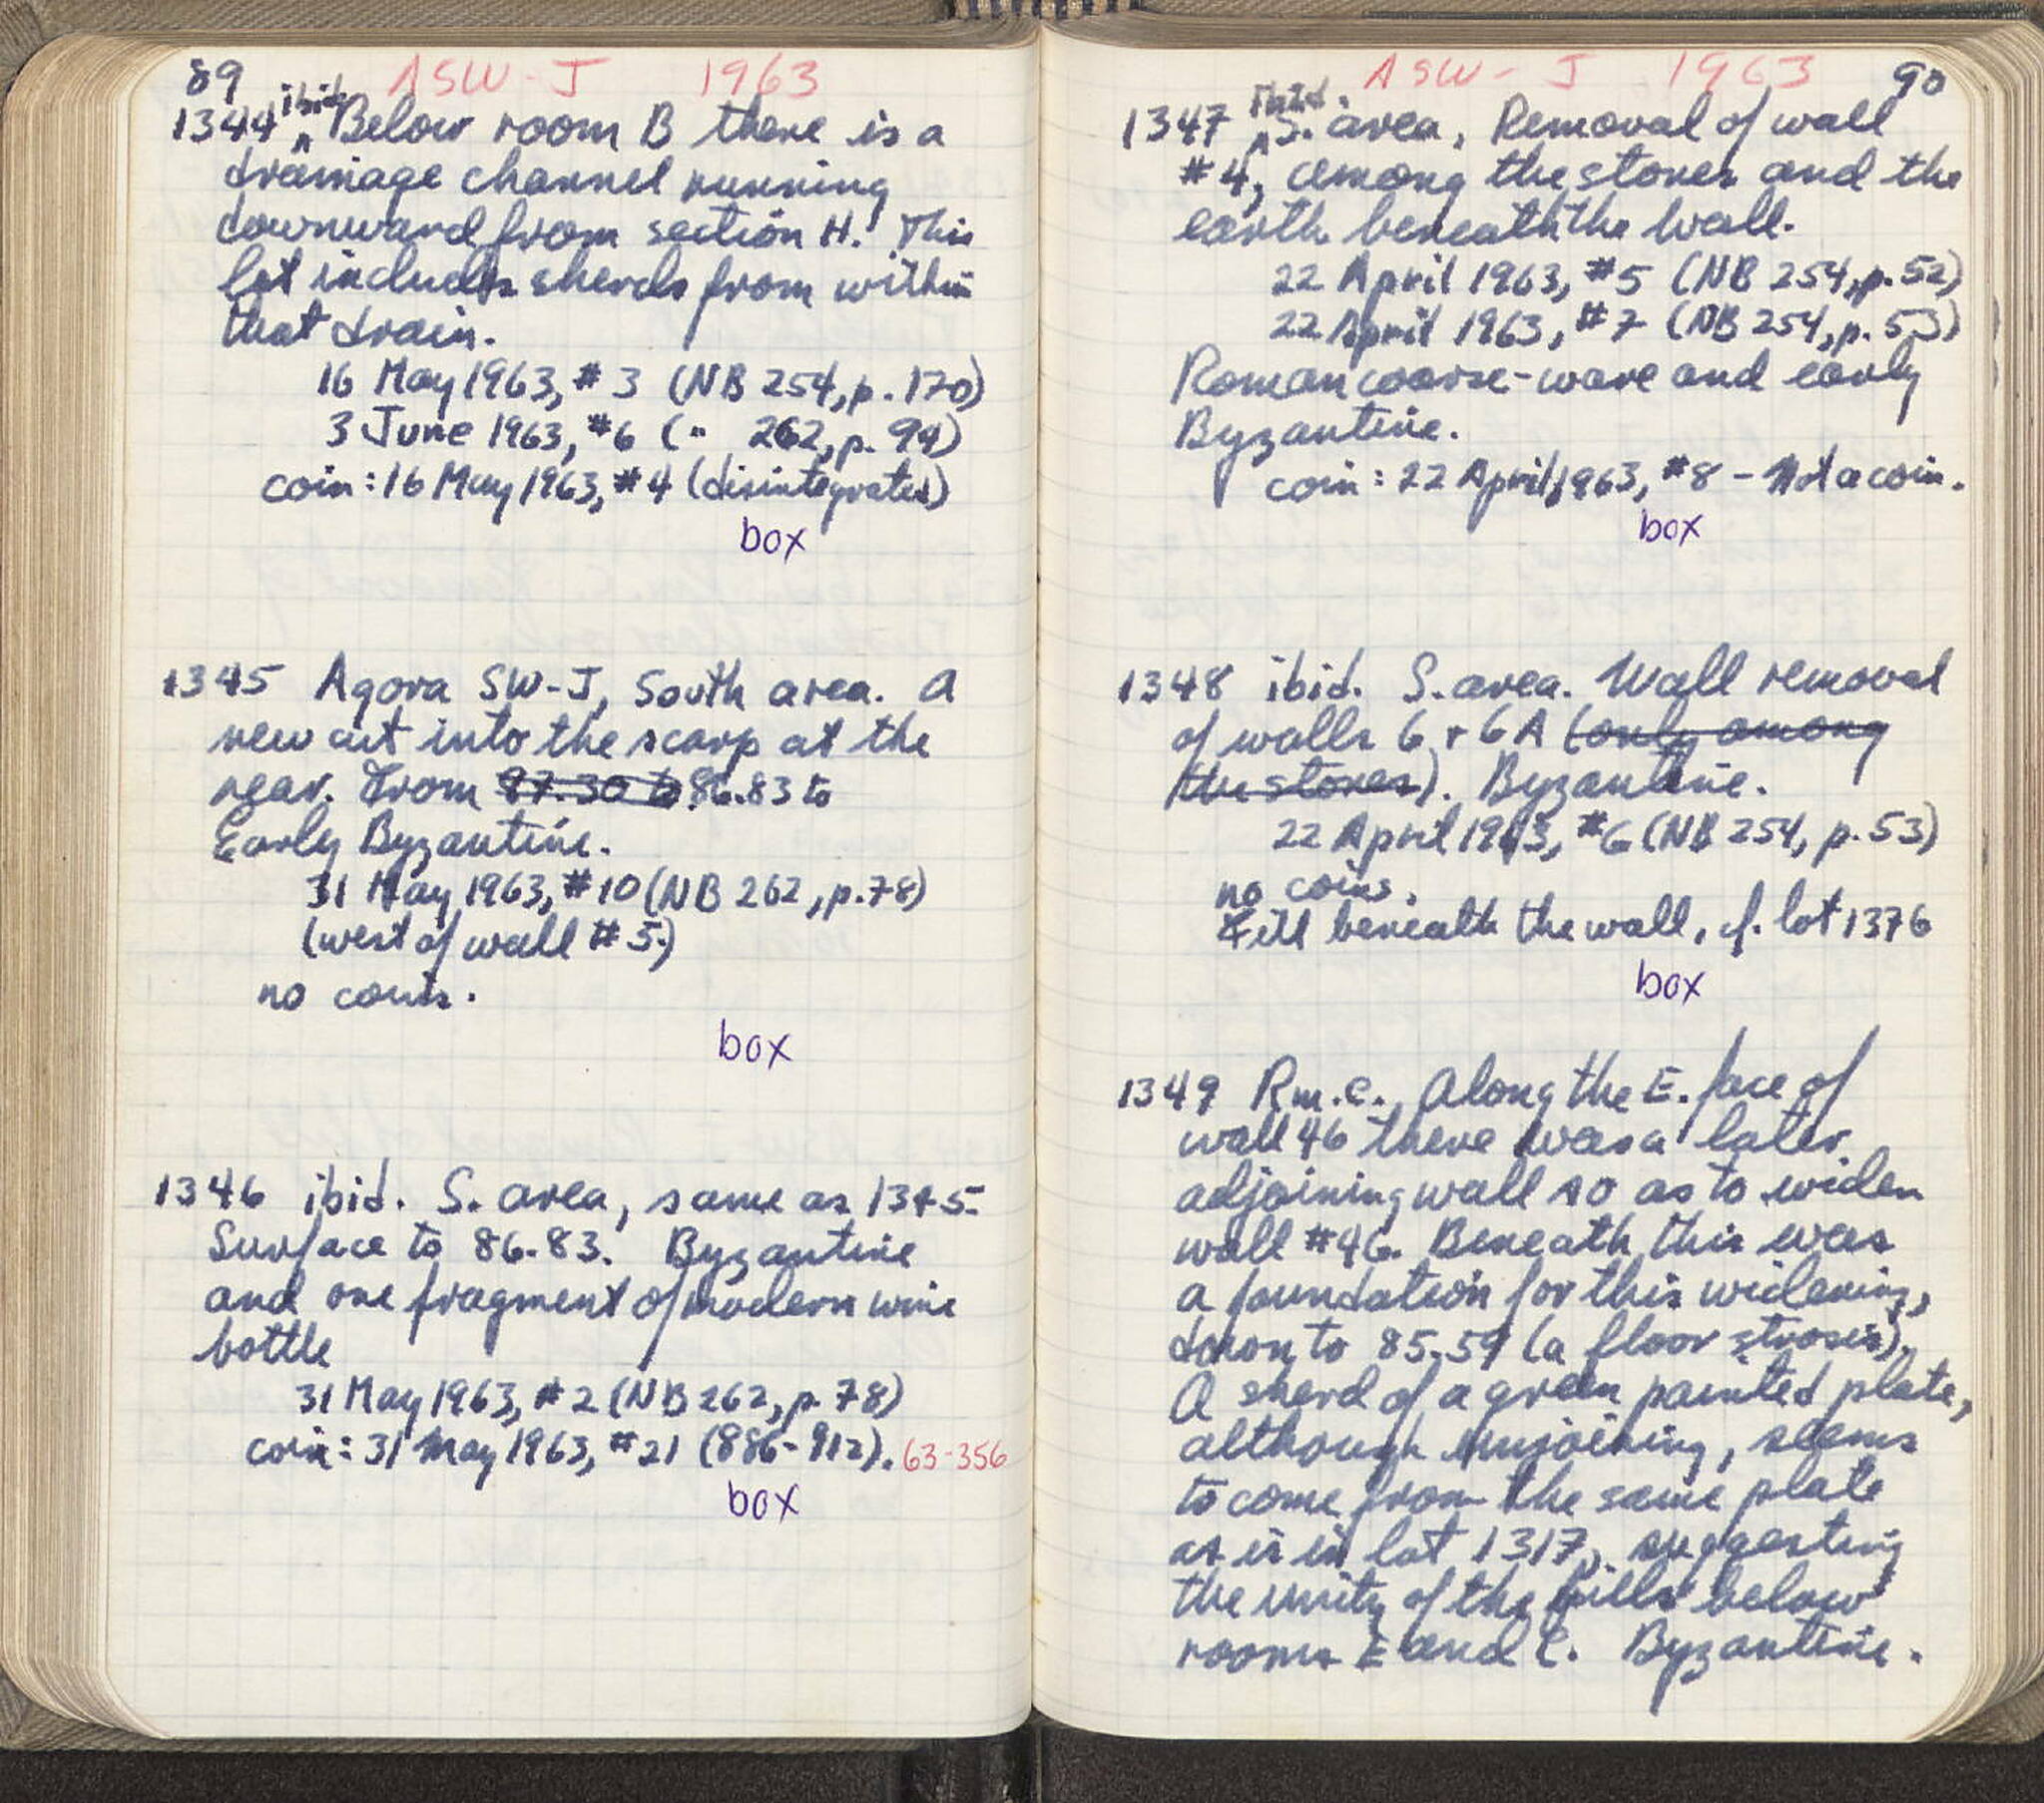 89 ASW-J 1963
1344 ibid. Below room B there is a
drainage channel running
downward from section H. This
lot includes sherds from within
that drain.
16 May 1963, #3 (NB 254, p. 170)
3 June 1963, #6 (" 262, p. 94)
coin: 16 May 1963, #4 (disintegrated)
box
1345 Agora SW-J, South area. A
new cut into the scarp at the
rear. From 87.30 to 86.83 to
Early Byzantine.
31 May 1963, #10 (NB 262, p. 78)
(west of wall #5.)
no coins.
box
1346 ibid. S. area, same as 1345.
Surface to 86.83. Byzantine
and one fragment of modern wine
bottle
31 May 1963, #2 (NB 262, p. 78)
coin: 31 May 1963, #21 (886-912). 63-356
box
ASW-J 1963 90
1347 ibid. S. area, Removal of wall
#4, among the stones and the
earth beneath the wall.
22 April 1963, #5 (NB 254, p. 52)
22 April 1963, #7 (NB 254, p. 53)
Roman coarse-ware and early
Byzantine.
coin: 22 April 1963, #8 - Not a coin.
box
1348 ibid. S. area. Wall removal
of walls 6 + 6A (only among
the stones). Byzantine.
22 April 1963, #6 (NB 254, p. 53)
no coins.
Fill beneath the wall, cf. lot 1376
box
1349 Rm. C. Along the E. face of
wall 46 there was a later
adjoining wall so as to widen
wall #46. Beneath this was
a foundation for this widening,
down to 85.59 (a floor strosis).
A sherd of a green painted plate,
although unjoining, seems
to come from the same plate
as is in lot 1317, suggesting
the unity of the fills below
rooms E and C. Byzantine.